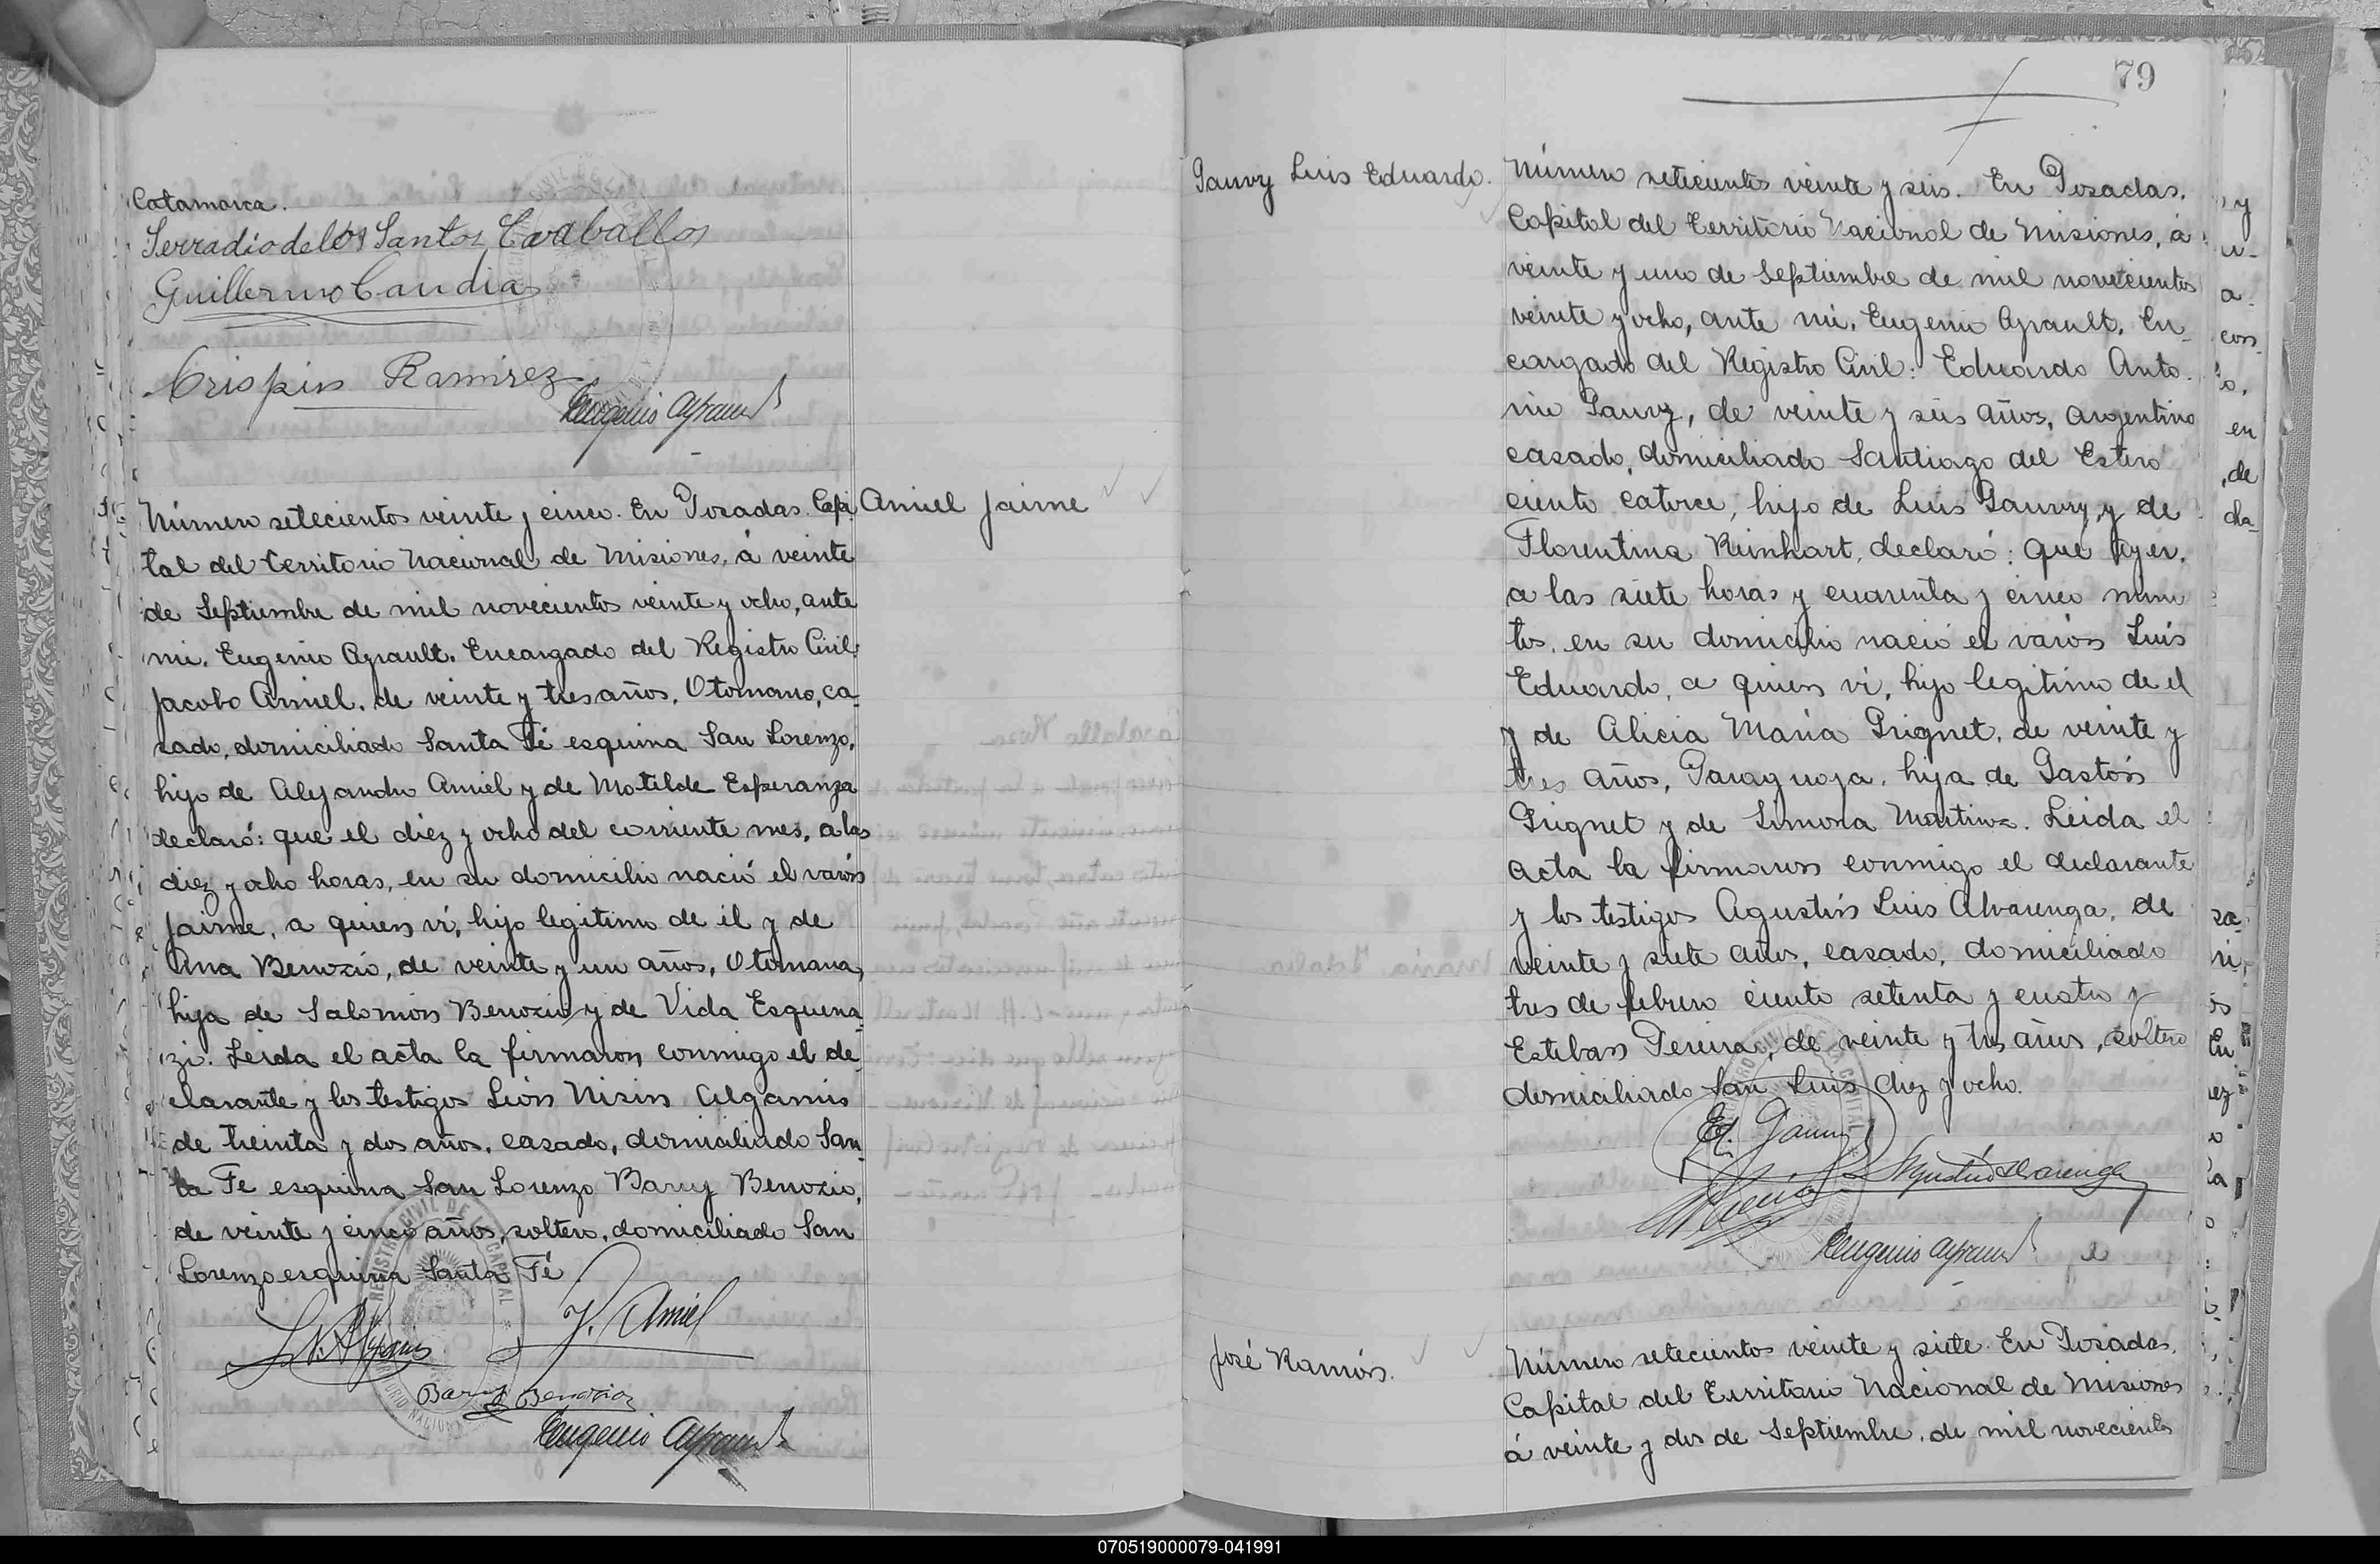 Catamarca.
Serradio de los Santos Caraballos
Guillermo Candia
Crispin Ramirez
Eugenio Ayrault
Número setecientos veinte y cinco. En Posadas. Capi
Amiel Jaime
tal del Territorio Nacional de Misiones, á veinte
de Septiembre de mil novecientos veinte y ocho, ante
mi, Eugenio Ayrault, Encargado del Registro Civil:
Jacobo Amiel, de veinte y tres años, Otomano, ca-
sado, domiciliado Santa Fé esquina San Lorenzo,
hijo de Alejandro Amiel y de Matilde Esperanza
declaró: que el diez y ocho del corriente mes, a las
diez y ocho horas, en su domicilio nació el varón
Jaime, a quien ví, hijo legitimo de él y de
Ana Benozio, de veinte y un años, Otomana,
hija de Salomón Benozio y de Vida Esquena-
zi. Leida el acta la firmaron conmigo el de-
clarante y los testigos León Nisin Algamis
de treinta y dos años, casado, domiciliado San-
ta Fe esquina San Lorenzo Baruj Benozio,
de veinte y cinco años, soltero, domiciliado San
Lorenzo esquina Santa Fé
J. Amiel
Baruj Benozio
Eugenio Ayrault
79
Gauvry Luis Eduardo.
Número setecientos veinte y seis. En Posadas.
Capital del Territorio Nacional de Misiones, á
veinte y uno de Septiembre de mil novecientos
veinte y ocho, ante mi, Eugenio Ayrault, En-
cargado del Registro Civil: Eduardo Anto-
nio Gauvry, de veinte y seis años, Argentino
casado, domiciliado Santiago del Estero
ciento catorce, hijo de Luis Gauvry, y de
Florentina Reinhart, declaró: que ayer,
a las siete horas y cuarenta y cinco minu
tos, en su domicilio nació el varón Luis
Eduardo, a quien ví, hijo legitimo de el
y de Alicia María Grignet, de veinte y
tres años, Paraguaya, hija de Gastón
Grignet y de Simona Martinez. Leida el
acta la firmaron conmigo el declarante
y los testigos Agustín Luis Alvarenga, de
veinte y siete años, casado, domiciliado
tres de febrero ciento setenta y cuatro y
Esteban Pereira, de veinte y tres años, soltero
domiciliado San Luis diez y ocho.
Ed. Gauvry
Agustín Alvarenga
Eugenio Ayrault
José Ramón.
Número setecientos veinte y siete. En Posadas,
Capital del Territorio Nacional de Misiones
á veinte y dos de Septiembre, de mil novecientos
070519000079-041991